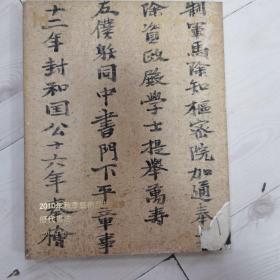 制軍馬除知樞密院加通奉
除資政殿學士提舉萬壽
友僕躲同中書門下平章事
十二年封和国公十六年檜
2010年秋季藝術品拍賣會
歷代書法